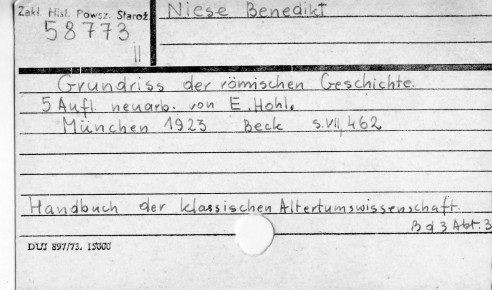 Zakł. Hist. Powsz. Staroż.
Niese Benedikt
58773
II
Grundriss der römischen Geschichte.
5 Aufl. neuarb. von E. Hohl.
München 1923 Beck s. VII, 462
Handbuch der klassischen Altertumswissenschaft.
Bd 3 Abt. 3
DUJ 897/73. 15000